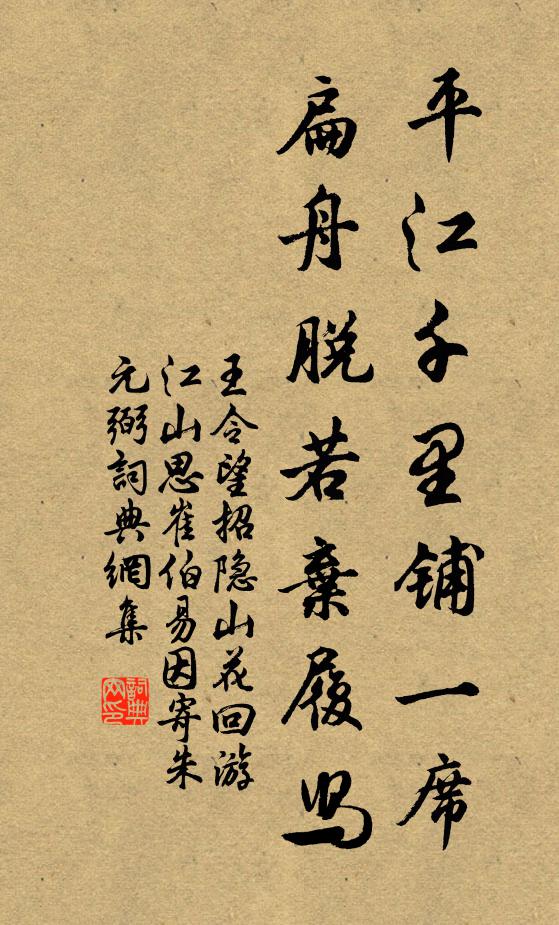 平江千里铺一席
扁舟脱若弃履舄
王令望招隐山花回游
江山思崔伯易因寄朱
元弼詞典網集
詞典
网印